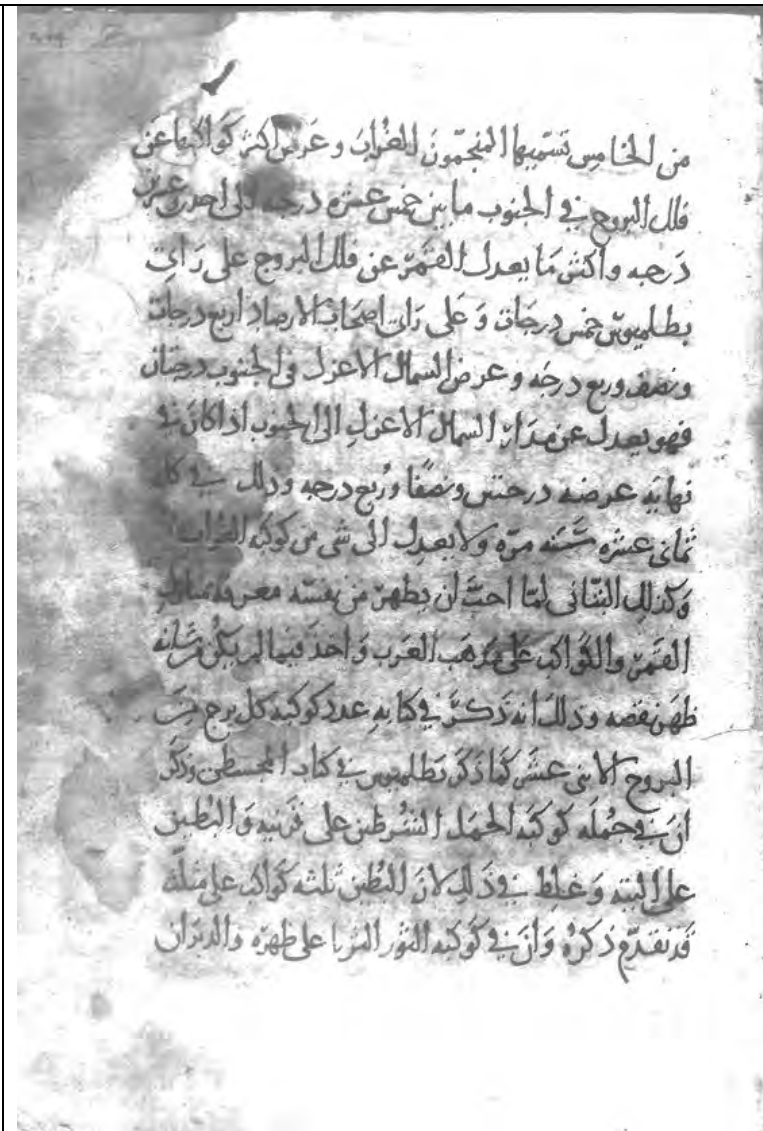 من الخامس تسميها المنجمون الغراب وعرض اكثر كواكبها عن
فلك البروج في الجنوب ما بين خمس عشره درجه الى احدى وعشرين
درجه واكثر ما يعدل القمر عن فلك البروج على راى
بطلميوس خمس درجات وعلى راى اصحاب الارصاد اربع درجات
ونصف وربع درجه وعرض السماك الاعزل في الجنوب درجتان
فهو يعدل عن مدار السماك الاعزل الى الجنوب اذا كان في
نهايه عرضه درجتين ونصفا وربع درجه وذلك في كل
ثمانى عشره سنه مره ولا يعدل الى شى من كوكبه الغراب
وكذلك البتانى لما احب ان يظهر من نفسه معرفه منازل
القمر والكواكب على مذهب العرب واخذ فيما لم يكن من شانه
ظهر نقصه وذلك انه ذكر في كتابه عدد كوكبه كل برج من
البروج الاثنى عشر كما ذكر بطلميوس في كتاب المجسطى وذكر
ان في جمله كوكبه الحمل الشرطين على قرنيه والبطين
على اليته وغلط في ذلك لان البطين ثلثه كواكب على مثلثه
قد تقدم ذكره وان في كوكبه الثور الثريا على ظهره والدبران